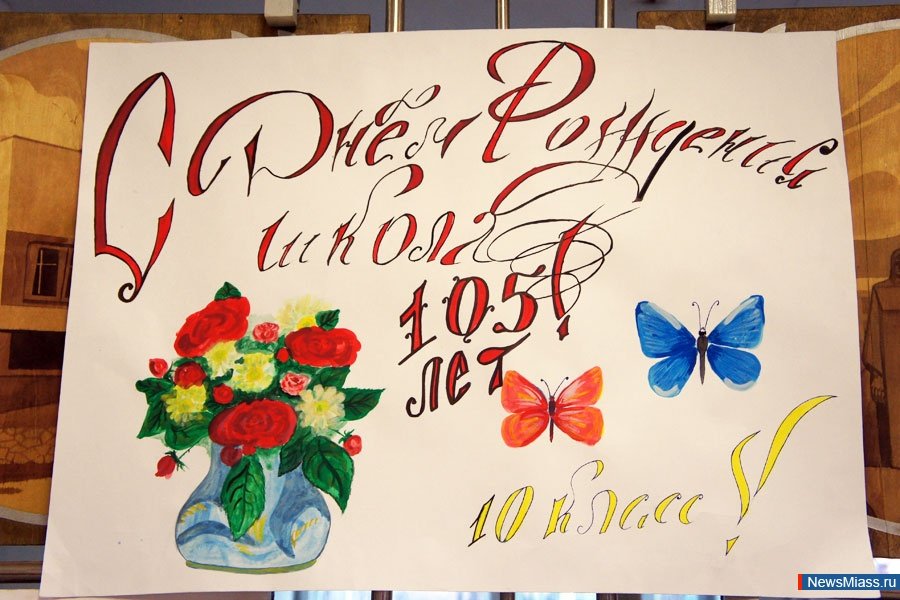 С Днём Рождения
школа!
105
лет
10 класс!
NewsMiass.ru